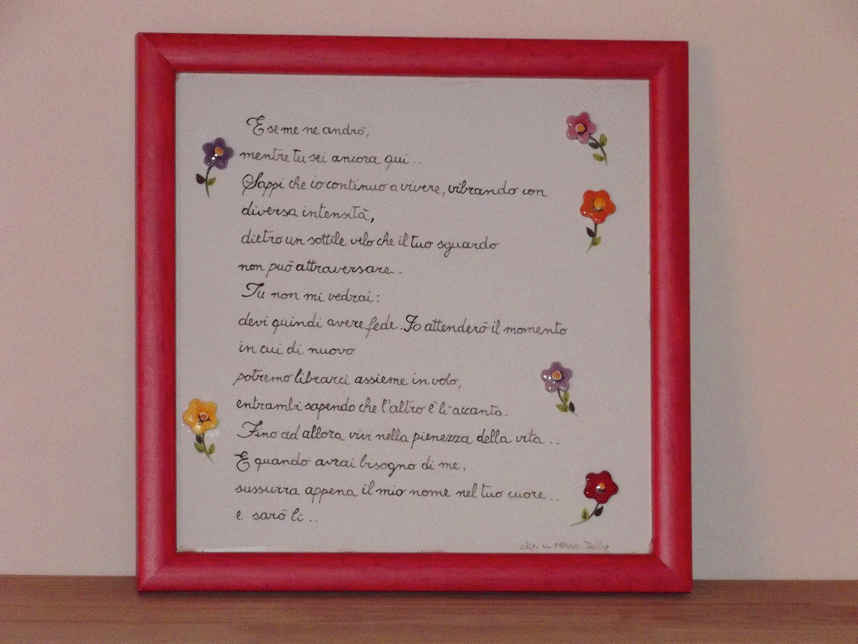 E se me ne andrò,
mentre tu sei ancora qui..
Sappi che io continuo a vivere, vibrando con
diversa intensità,
dietro un sottile velo che il tuo sguardo
non può attraversare..
Tu non mi vedrai:
devi quindi avere fede. Io attenderò il momento
in cui di nuovo
potremo librarci assieme in volo,
entrambi sapendo che l'altro è lì accanto.
Fino ad allora vivi nella pienezza della vita...
E quando avrai bisogno di me,
sussurra appena il mio nome nel tuo cuore...
e sarò lì..